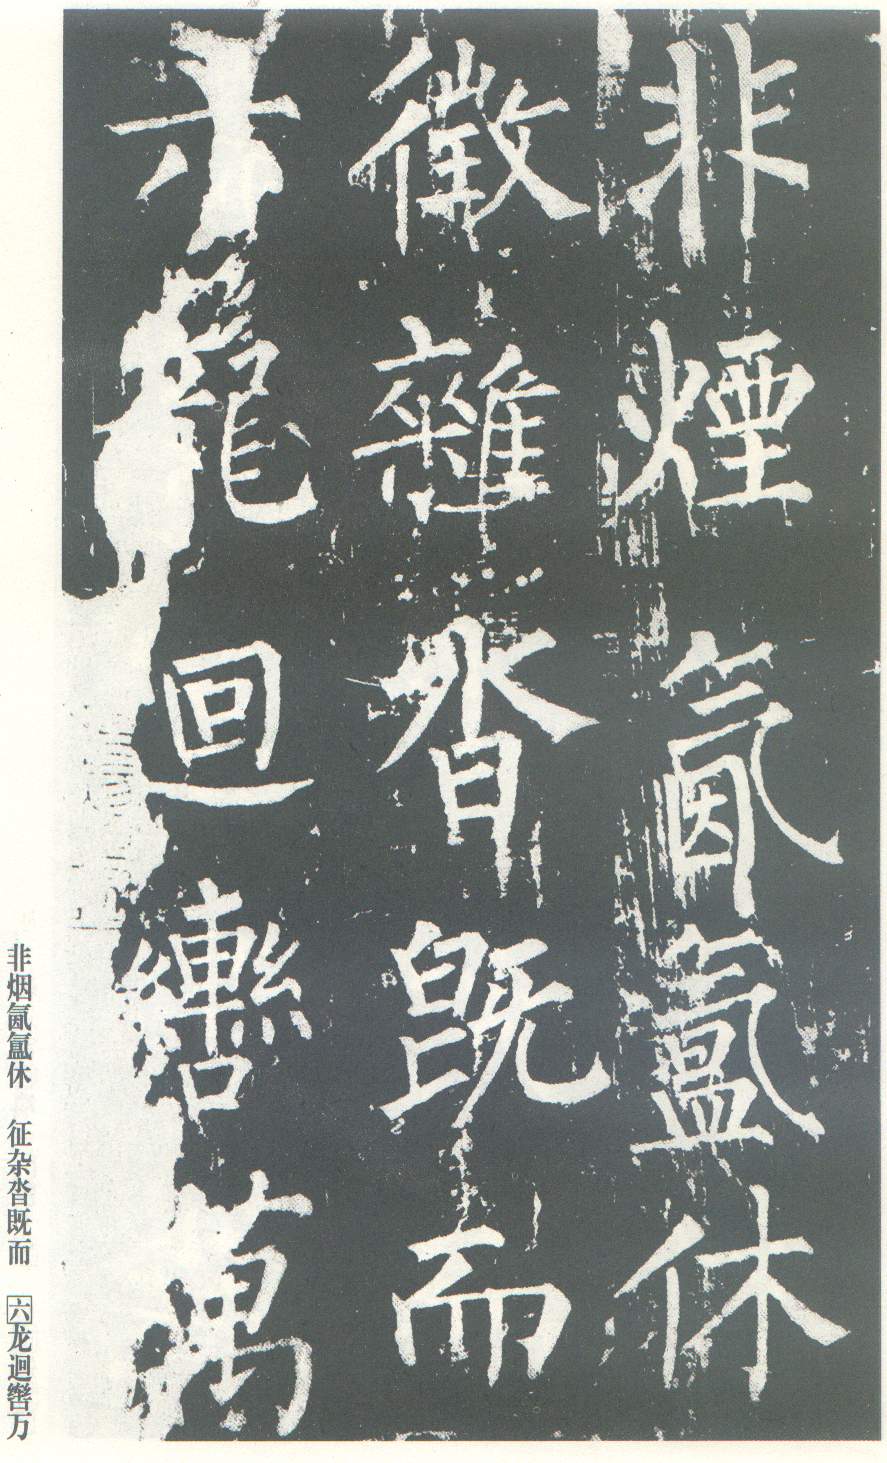 非煙氤氳休
徵雜沓既而
六龍迴轡萬
非烟氤氲休 征杂沓既而 六龙迴辔万